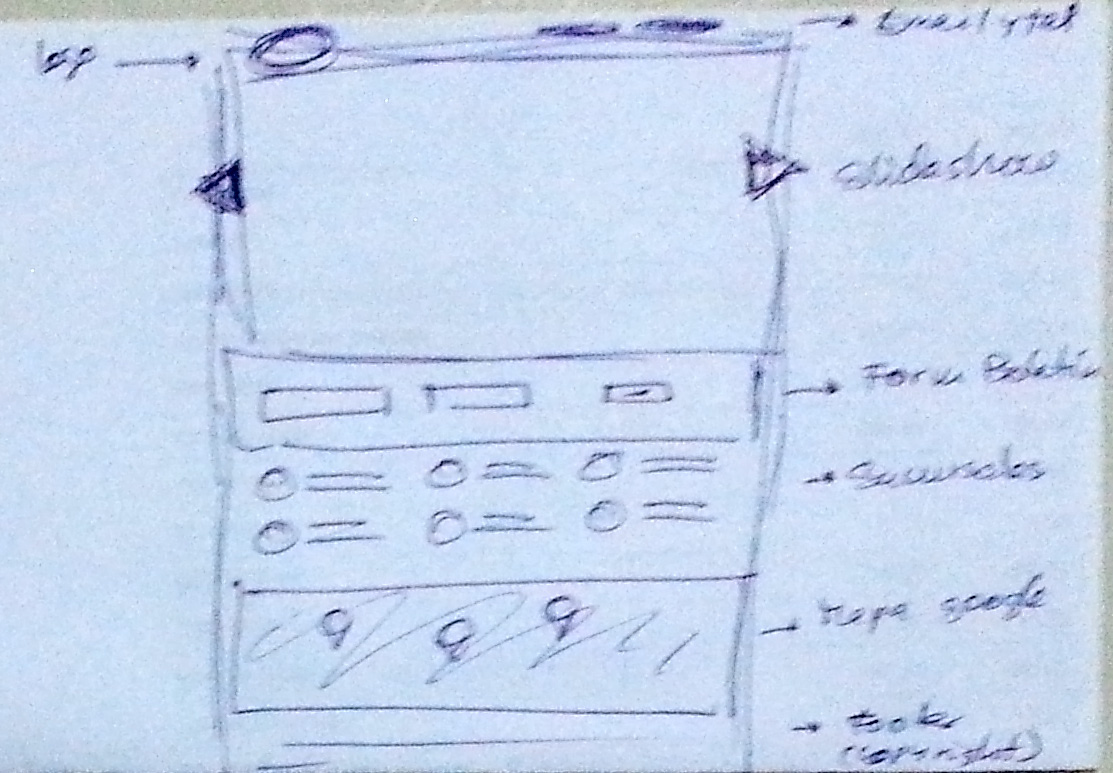 logo
Email y tel
Slideshow
Form Boletin
Sucursales
Mapa google
Footer
(copyright)